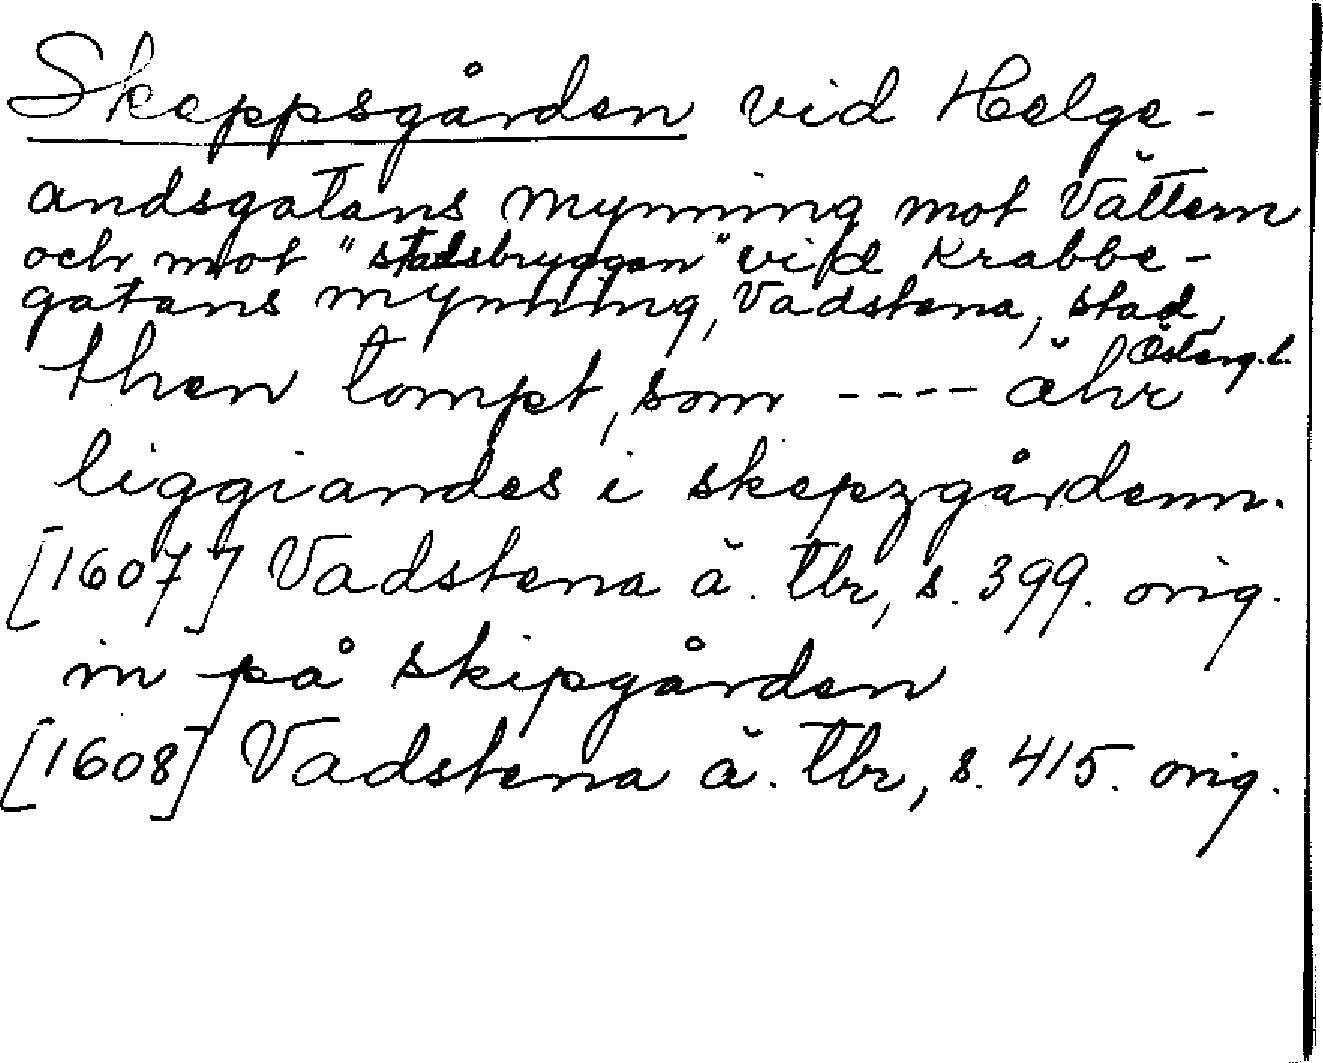 Skeppsgården vid Helge-
andsgatans mynning mot Vättern
och mot "stadsbryggan" vid Krabbe-
gatans mynning, Vadstena, stad,
Österg. l.
then tompt, som ---- ähr
liggiandes i skepzgårdenn.
[1607] Vadstena ä. tbr, s. 399. orig.
in på skipgården
[1608] Vadstena ä. tbr, s. 415. orig.